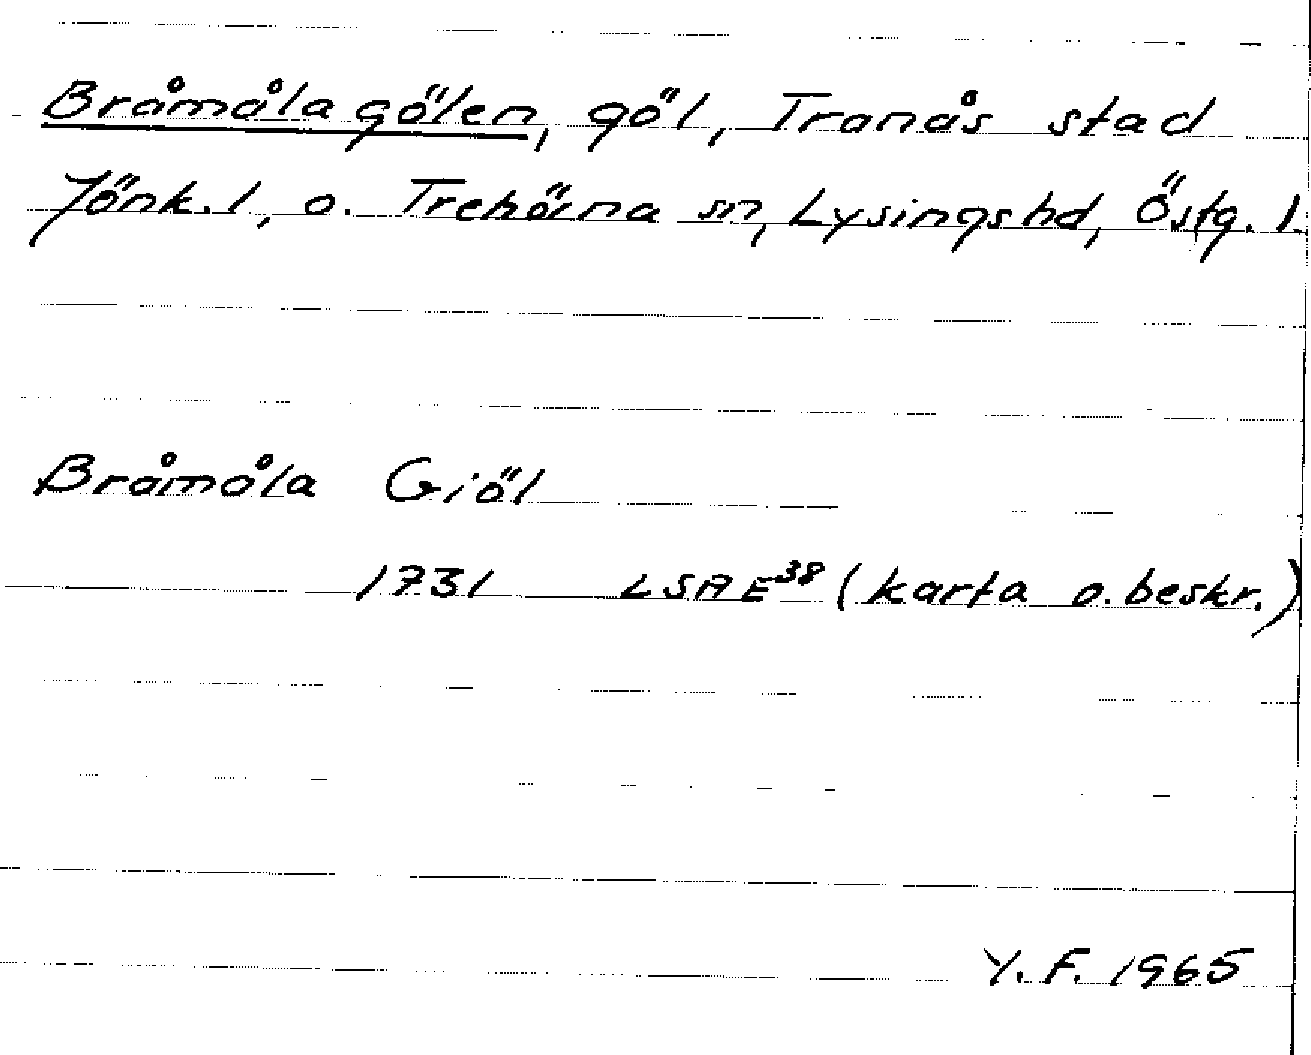 Bråmåla gölen, göl, Tranås stad
Jönk. l, o. Trehörna sn, Lysings hd, Östg. l.
Bråmåla Giöl
1731 LSA E38 (karta o. beskr.)
Y. F. 1965